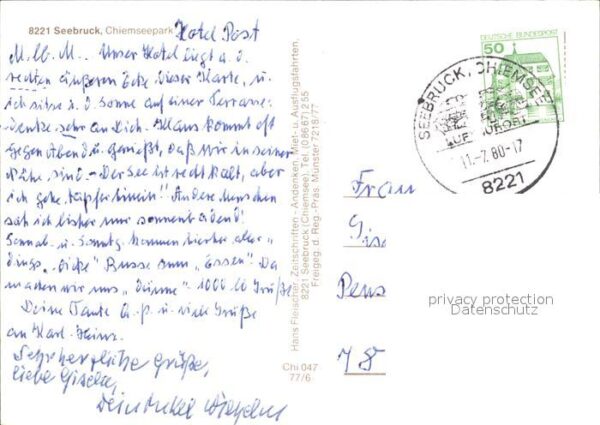 8221 Seebruck, Chiemseepark
Hotel Post
M. lb. M. Unser Hotel liegt a. d.
rechten äußeren Ecke dieser Karte, u.
ich sitze i. d. Sonne auf einer Terrasse:
denke sehr an Dich. Klaus kommt oft
gegen Abend u. genießt, daß wir in seiner
Nähe sind. - Der See ist recht kalt, aber
ich gehe tapfer hinein! Andere Menschen
sah ich bisher nur sonnenbadend!
Sonnab. u. Sonntg. kommen hierher aber
"dicke" Busse zum "Essen". Da
machen wir uns "dünne". 1000 lb Grüße
Deine Tante u. viele Grüße
an Karl-Heinz.
Sehr herzliche Grüße,
liebe Gisela,
Dein Onkel
Hans Fleischer, Zeitschriften - Andenken, Miet- u. Ausflugsfahrten,
8221 Seebruck (Chiemsee), Tel. (08667) 255
Freigeg. d. Reg.-Präs. Münster 7218/77
Chi 047
77/6
DEUTSCHE BUNDESPOST
50
SEEBRUCK, CHIEMSEE
LUFTKURORT
11.-7.80-17
8221
Frau
Gis
Pens
78
privacy protection
Datenschutz